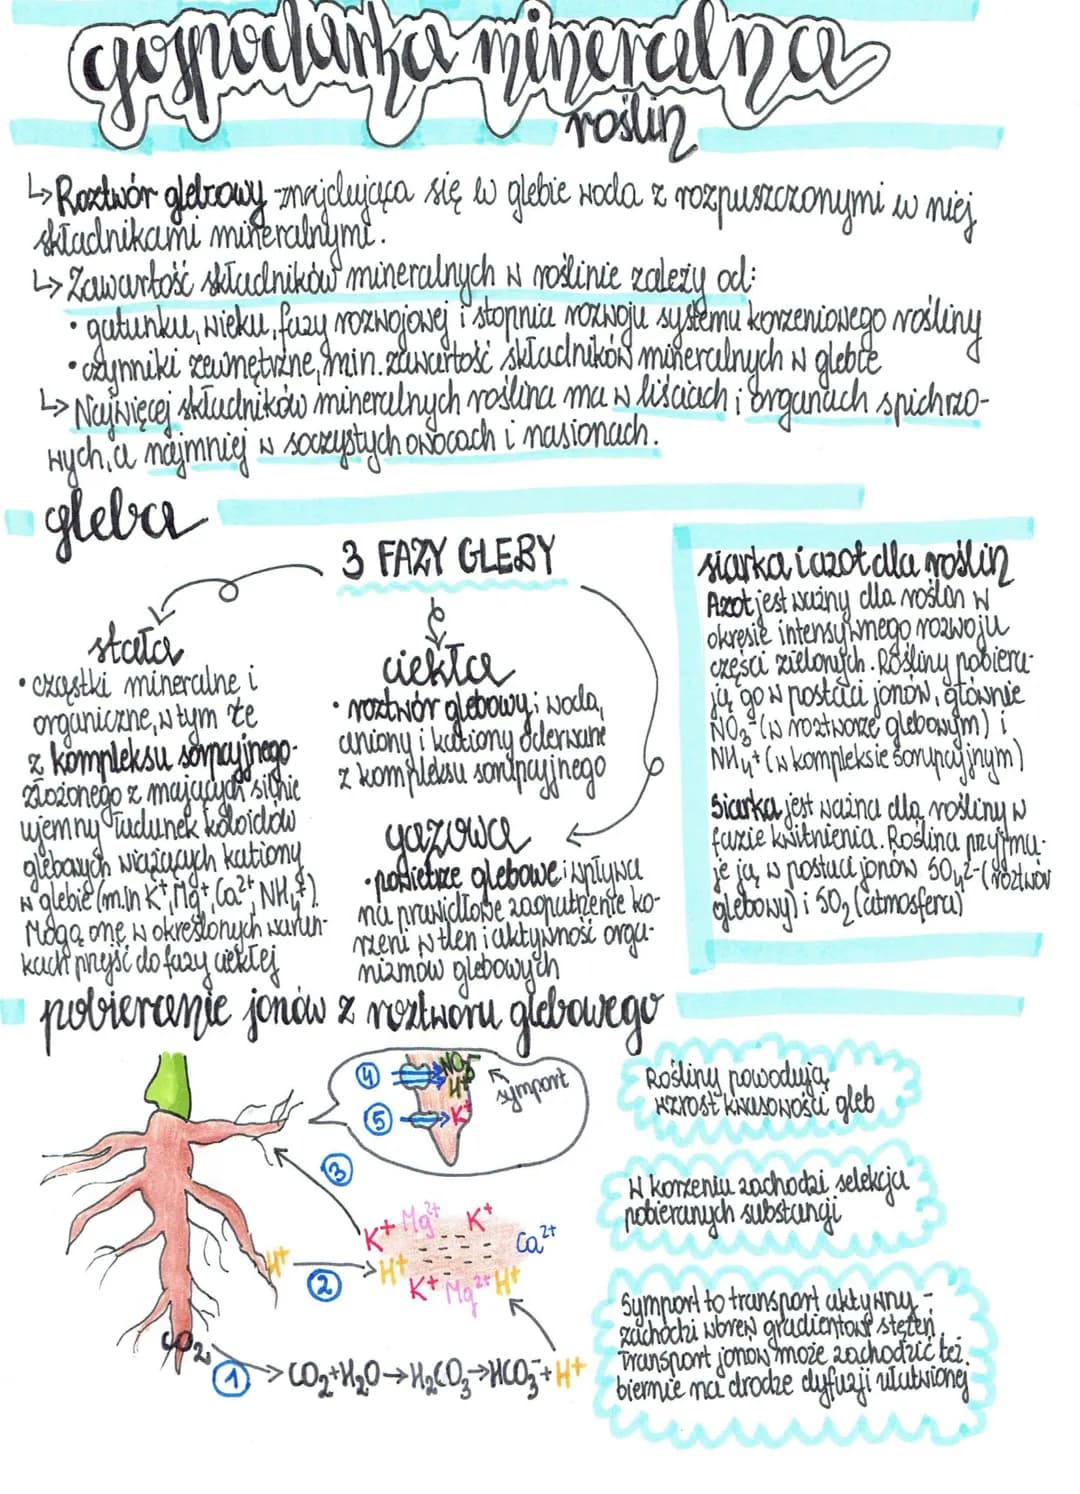 gospodarka mineralna
roślin
↳ Roztwór glebowy - znajdująca się w glebie woda z rozpuszczonymi w niej
składnikami mineralnymi.
↳ Zawartość składników mineralnych w roślinie zależy od:
• gatunku, wieku, fazy rozwojowej i stopnia rozwoju systemu korzeniowego rośliny
• czynniki zewnętrzne, min. zawartość składników mineralnych w glebie
↳ Najwięcej składników mineralnych roślina ma w liściach i organach spichrzo-
wych, a najmniej w soczystych owocach i nasionach.
gleba
3 FAZY GLEBY
stała
• cząstki mineralne i
organiczne, w tym te
z kompleksu sorpcyjnego-
złożonego z mających silnie
ujemny ładunek koloidów
glebowych wiążących kationy
w glebie (m.in K⁺, Mg⁺, Ca²⁺, NH₄⁺).
Mogą one w określonych warun-
kach przejść do fazy ciekłej
ciekła
• roztwór glebowy: woda,
aniony i kationy oderwane
z kompleksu sorpcyjnego
gazowa
• powietrze glebowe: wpływa
na prawidłowe zaopatrzenie ko-
rzeni w tlen i aktywność orga-
nizmów glebowych
siarka i azot dla roślin
Azot jest ważny dla roślin w
okresie intensywnego rozwoju
części zielonych. Rośliny pobiera-
ją go w postaci jonów, głównie
NO₃⁻ (w roztworze glebowym) i
NH₄⁺ (w kompleksie sorpcyjnym)
Siarka jest ważna dla rośliny w
fazie kwitnienia. Roślina przyjmu-
je ją w postaci jonów SO₄²⁻ (roztwór
glebowy) i SO₂ (atmosfera)
pobieranie jonów z roztworu glebowego
4 NO₃⁻
H⁺
5 K⁺
symport
3
K⁺ Mg²⁺ K⁺ Ca²⁺
H⁺ 2 H⁺ K⁺ Mg²⁺ H⁺
CO₂
1 CO₂+H₂O→H₂CO₃→HCO₃⁻+H⁺
Rośliny powodują
wzrost kwasowości gleb
W korzeniu zachodzi selekcja
pobieranych substancji
Symport to transport aktywny -
zachodzi wbrew gradientowi stężeń.
Transport jonów może zachodzić też
biernie na drodze dyfuzji ułatwionej